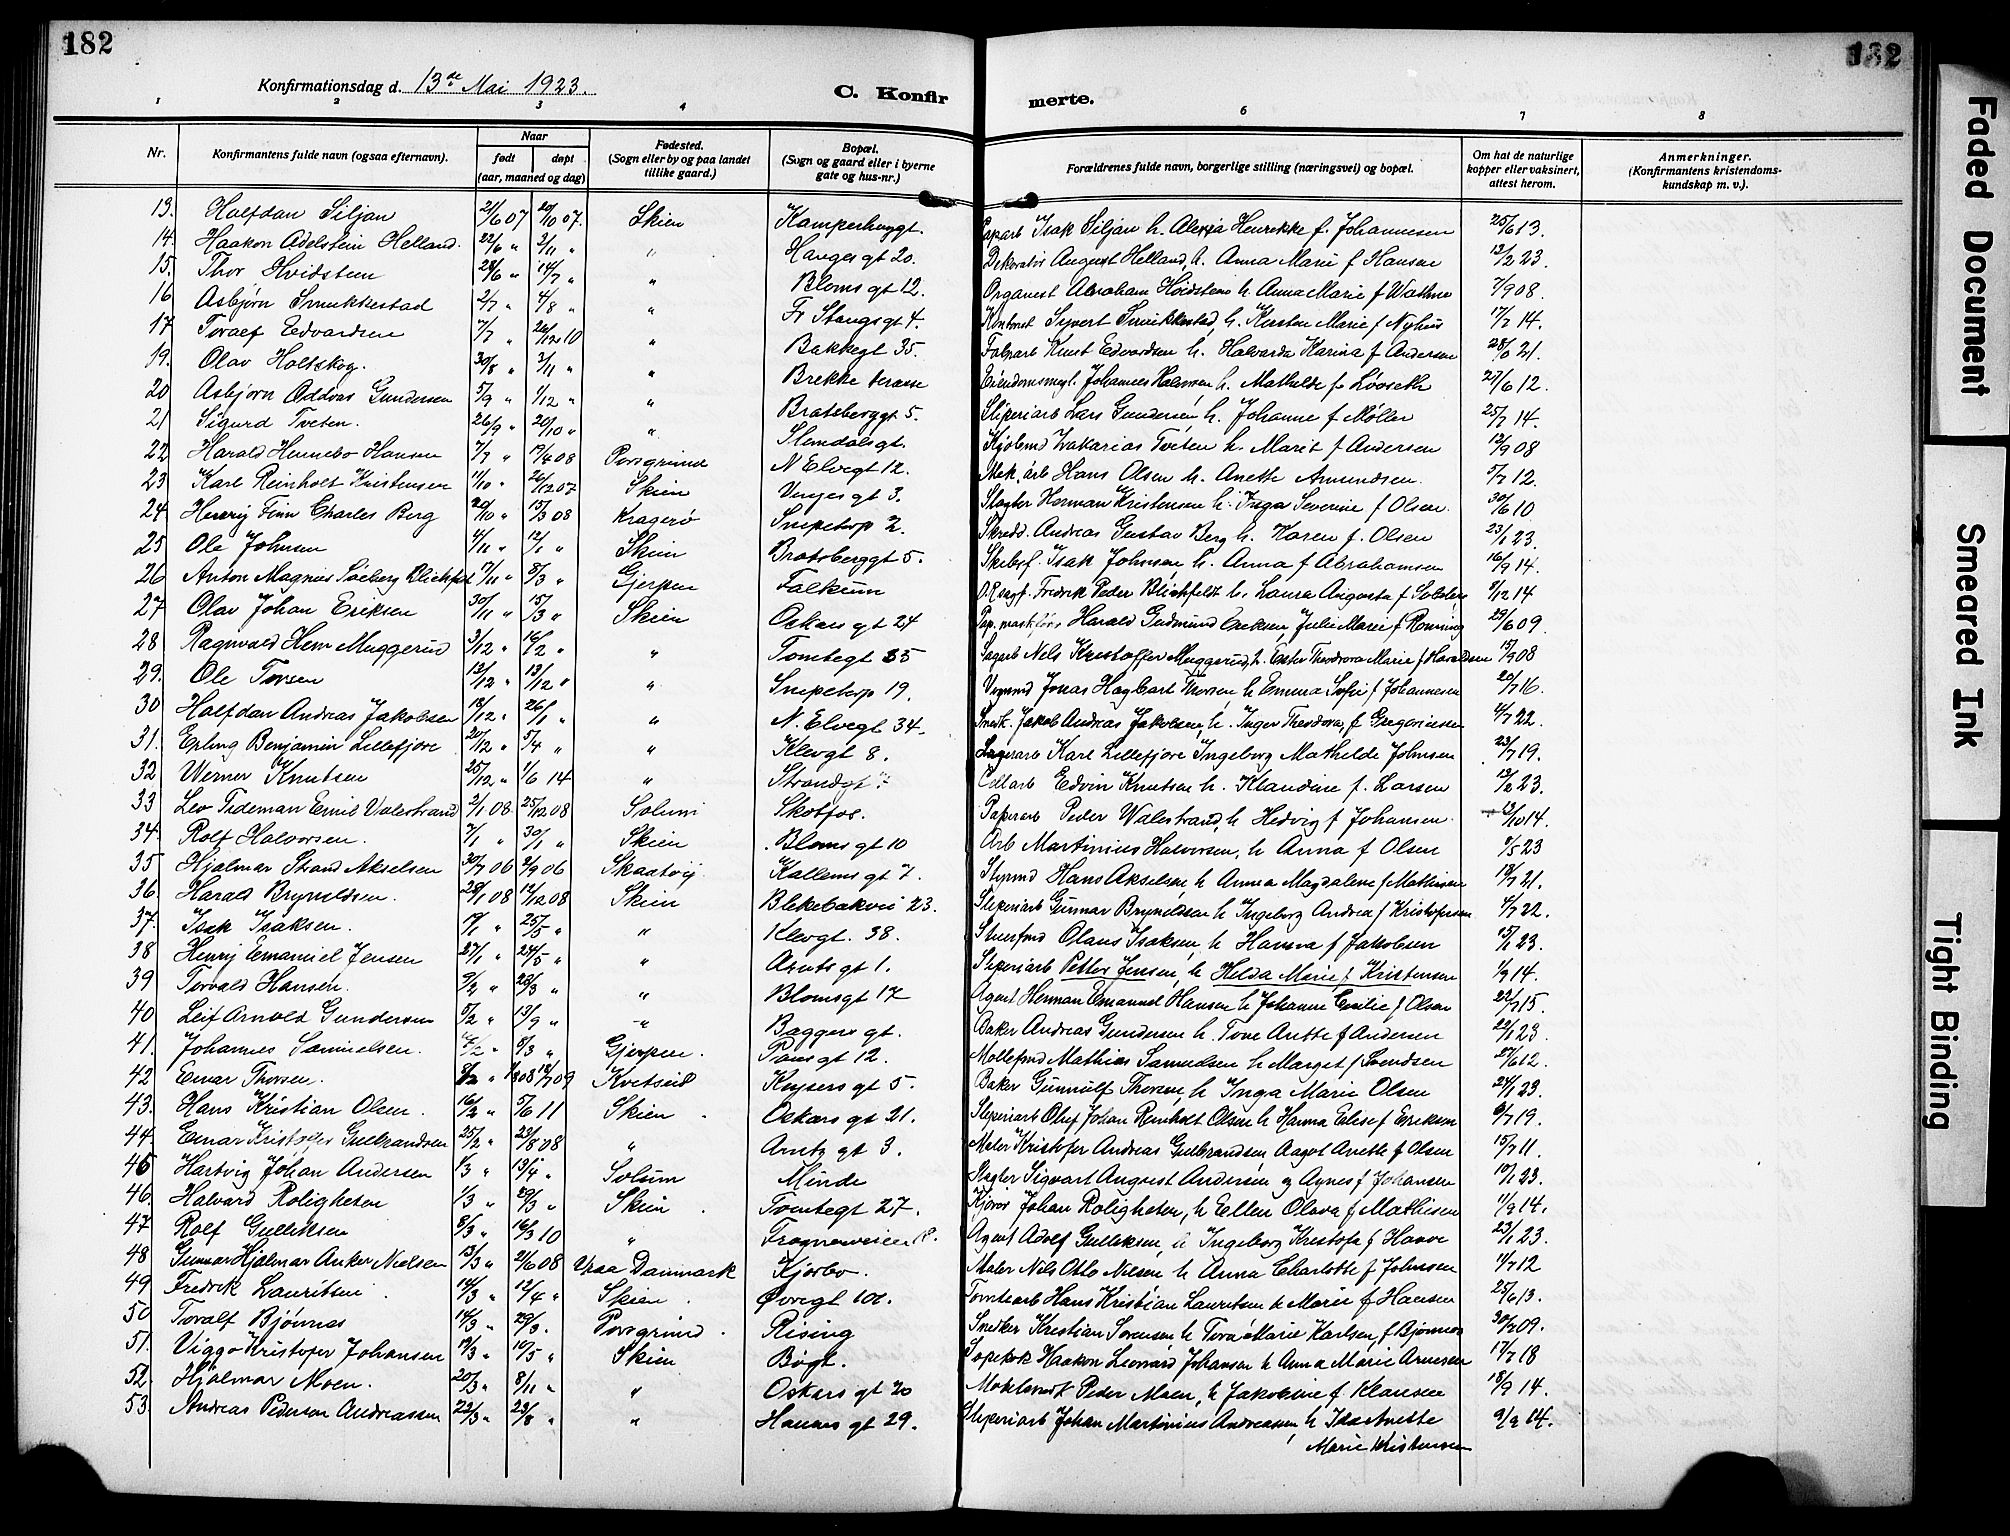 182
182
Konfirmationsdag d. 13de Mai 1923.
C. Konfir
merte.
1 2 3 4 6 7 8
Nr. Konfirmantens fulde navn (ogsaa efternavn). Naar født døpt (aar, maaned og dag) Fødested. (Sogn eller by og paa landet tillike gaard.) Bopæl. (Sogn og gaard eller i byerne gate og hus-nr.) Forældrenes fulde navn, borgerlige stilling (næringsvei) og bopæl. Om hat de naturlige kopper eller vaksinert, attest herom. Anmerkninger. (Konfirmantens kristendoms-kundskap m. v.).
13. Halfdan Siljan 21/6 07 20/10 07. Skien Isak Siljan h. Henrikke f. Johannesen 25/6 13.
14. Haakon Adelstein Helland. 22/6 " 3/11 " " Hauges gt 20. Dekoratør August Helland, h. Anna Marie f Hansen 13/2 23.
15. Thor Hvidsteen 28/6 " 14/7 " " Bloms gt 12. Organist Abraham Hvidsteen h. Anna Marie f 7/9 08.
16 Asbjørn Smukkestad 2/7 " 4/8 " " Fr Stangs gt 4. Syvert h. Kirsten Marie f Nyhus 17/7 14.
17. Toralf Edvardsen 7/7 " 26/12 10 " Bakkegt 35. Knut Edvardsen h. Halvarda Karina f Andersen
19. Olav Holtskog. 30/8 " 3/11 " " Brekke terasse Johannes Halvorsen h. Mathilde f. Løvseth 27/6 12.
20 Asbjørn Oddvar Gundersen 5/9 " 1/12 " " Bratsberggt 5. Sliperiarb Lars Gundersen h. Johanne f Møller 25/7 14.
21 Sigurd Tveten. 26/9 " 20/10 " " Stendalsgt. Zakarias Tveten h. Marit f Andersen 12/9 08
22 Harald Hansen 7/7 " 17/4 08 Porsgrund N Elvegt 12. Mek. arb Hans Olsen h. Anette Amundsen. 5/7 12.
23 Karl Reinholt Kristensen 11/10 " 26/12 07 Skien gt 3. Slagter Herman Kristensen h. Inga Severine f Olsen. 30/6 10
24 Henry Finn Charles Berg 20/10 " 15/3 08 Kragerø Snipetorp 2. Skredd. Andreas Gustav Berg h. Karen f. Olsen 23/1 23.
25 Ole Johnsen 4/11 " 12/1 " Skien Bratsberggt 5. Isak Johnsen, h. Anna f Abrahamsen 16/9 14.
26 Anton Magnus Søeberg Blichfeldt 17/11 " 8/3 " Gjerpen Falkum Fredrik Peder Blichfeldt h. Laura Augusta f 8/12 14
27 Olav Johan Eriksen 30/11 " 15/3 " Skien Oskars gt 24 Harald Gudmund Eriksen, Julie Marie f Rønning 29/6 09.
28 Ragnvald Henr Muggerud 3/12 " 16/2 " " Tomtegt 35 Sagarb Nils Kristoffer Muggerud, h. Ester Theodora Marie f Haraldsen 15/9 08
29. Ole Torsen 13/12 " 13/12 " " Snipetorp 19. Jonas Hagbart Thorsen h Emma Sofie f Johannesen 20/7 16.
30 Halfdan Andreas Jakobsen 18/12 " 26/1 " " N. Elvegt 34. Jakob Andreas Jakobsen, h. Inger Theodora, f Gregoriussen 4/7 22.
31. Erling Benjamin Lillefjore 20/12 " 5/4 " " Klevgt 8. Lagerarb Karl Lillefjore Ingeborg Mathilde Johnsen 23/7 19.
32 Werner Knutsen 25/12 " 1/6 14 " Strandgt Edvin Knutsen h. Klaudine f. Larsen 13/2 23.
33 Leo Tideman Emil Valestrand 2/1 08 25/12 08 Solum Skotfos. Papirarb Peder Walestrand, h Hedvig f Johansen. 13/10 14.
34. Rolf Halvorsen. 7/1 " 30/1 " Skien Bloms gt 10 Arb Martinius Halvorsen, h Anna f Olsen 9/5 23
35 Hjalmar Strand Akselsen 30/7 06 2/9 06 Skaatøy Kallems gt 7. Styrmd Hans Akselsen, h Anna Magdalene f Mathisen 18/7 21.
36. Harald Brynildsen. 28/1 08 12/12 08 Skien Blekebakvei 23. Sliperiarb Gunnar Brynildsen h Ingeborg Andrea f Kristofersen 4/7 22.
37. Isak Isaksen. 17/1 " 25/5 " " Klevgt. 38. Olaus Isaksen, h Hanna f Jakobsen 15/1 23.
38 Henry Emanuel Jensen 27/1 " 24/5 " " Arnts gt 1. Sliperiarb Petter Jensen, h Helda Marie f Kristensen 1/9 14.
39 Torvald Hansen. 9/2 " 28/3 " " Blomsgt 17 Agent Herman Emanuel Hansen h Johanne Emilie f Olsen 22/7 15.
40 Leif Arnold Gundersen 5/2 " 13/9 " " Baggers gt. Baker Andreas Gundersen h. Tone Anthe f Andersen 22/1 23.
41. Johannes Samuelsen. 7/2 " 8/3 " Gjerpen. gt 12. Møllefmd Mathias Samuelsen h Marget f Svendsen 27/6 12.
42 Einar Thorsen. 8/2 " Kvitseid Keysers gt 5. Baker Gunnulf Thorsen, h Inga Marie Olsen 24/1 23.
43. Hans Kristian Olsen. 16/2 " 5/6 11 Skien Oskars gt 21. Sliperiarb Oluf Johan Reinholt Olsen h Hanna Elise f Eriksen 6/7 19.
44. Einar Kristoffer Gulbrandsen 25/2 " 23/8 08 " Arntz gt 3. Maler Kristofer Andreas Gulbrandsen, Aagot Anette f Olsen 15/7 11.
45 Hartvig Johan Andersen 1/3 " 13/4 " Solum Minde Sigvart August Andersen og Agnes f Johansen 10/1 23.
46. Halvard Roligheten 1/3 " 29/3 " Skien Tomtegt 27. Johan Roligheten, h Ellen Olava f Mathisen 11/9 14.
47 Rolf Gulliksen 8/3 " 16/3 10 " Frognerveien Agent Adolf Gulliksen, h Ingeborg Kristofa f Haave 23/1 23.
48 Gunnar Hjalmar Anker Nielsen 13/3 " 21/6 08 Danmark Kjørbo. Maler Nils Otto Nilsen h Anna Charlotte f Johnsen 11/7 12
49 Fredrik Lauritsen 14/3 " 12/4 " Skien. Øvregt Tomtearb Hans Kristian Lauritsen h Marie f Hansen 25/6 13.
50 Toralf Bjønnes 14/3 " 29/3. Porsgrund. Rising Snedker Kristian Sørensen h Tora Marie Karlsen, f Bjønnes 30/7 09.
51. Viggo Kristofer Johansen 19/3 " 10/5 " Skien Bøgt. Haakon Leonard Johansen h Anna Marie Arnesen 17/7 18
52. Hjalmar Moen. 20/3 " 8/11 " " Oskars gt 20 Peder Moen, h Jakobine f Klausen 18/9 14.
53. Andreas Pederson Andreassen 22/3 " 23/8 " " Hannes gt 29. Sliperiarb Johan Martinius Andreassen, h Ida Anette 9/9 14.
Marie Kristensen
Faded Document
Smeared Ink
Tight Binding